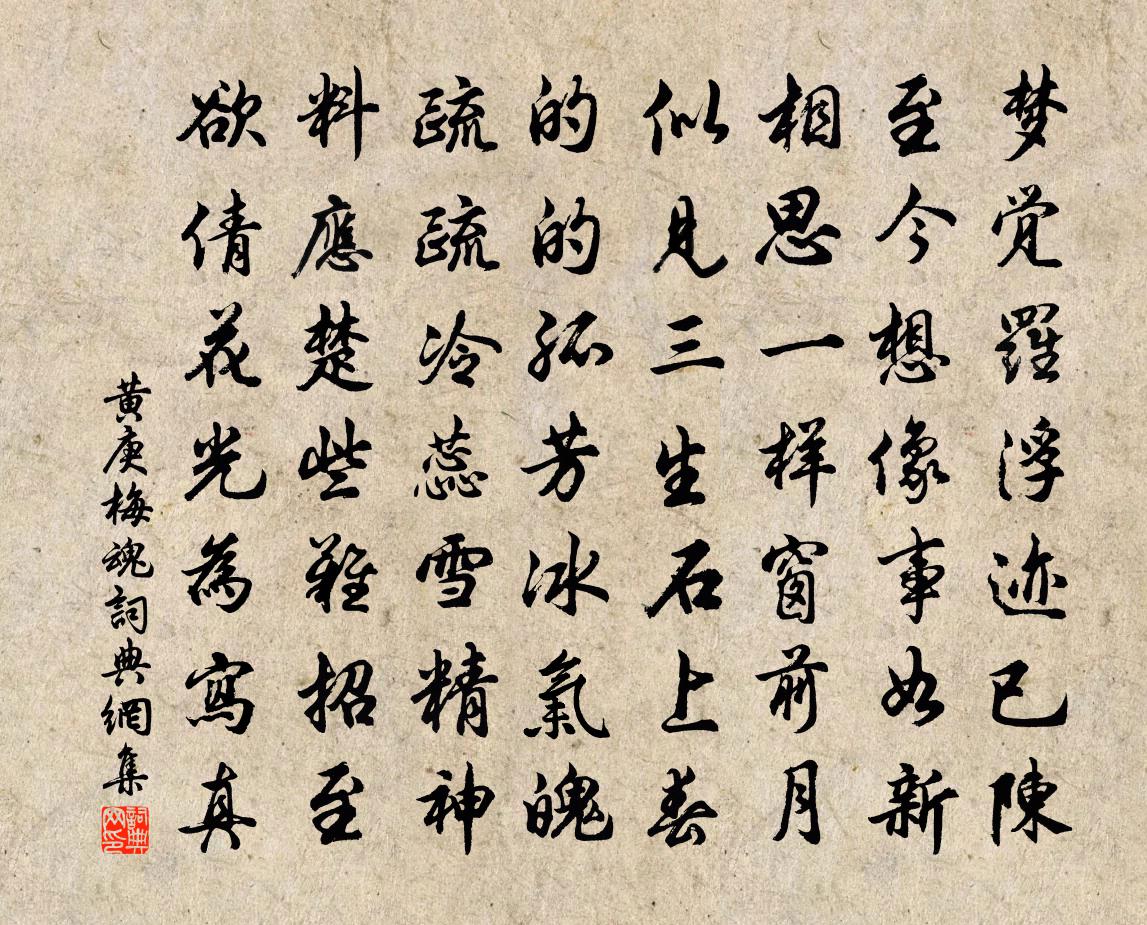 梦觉羅浮迹已陳
至今想像事如新
相思一样窗前月
似見三生石上春
的的孤芳冰氣魄
疏疏冷蕊雪精神
料應楚些難招至
欲倩花光為寫真
黄庚梅魂詞典網集
詞典
网印